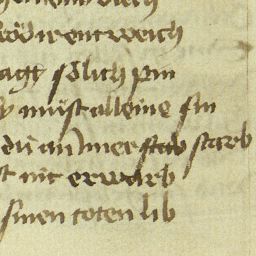 vō dir entweich
sagt sōlich pin
müst alleine sin
du an mer stab starb
nit erwarb
sinen toten lib